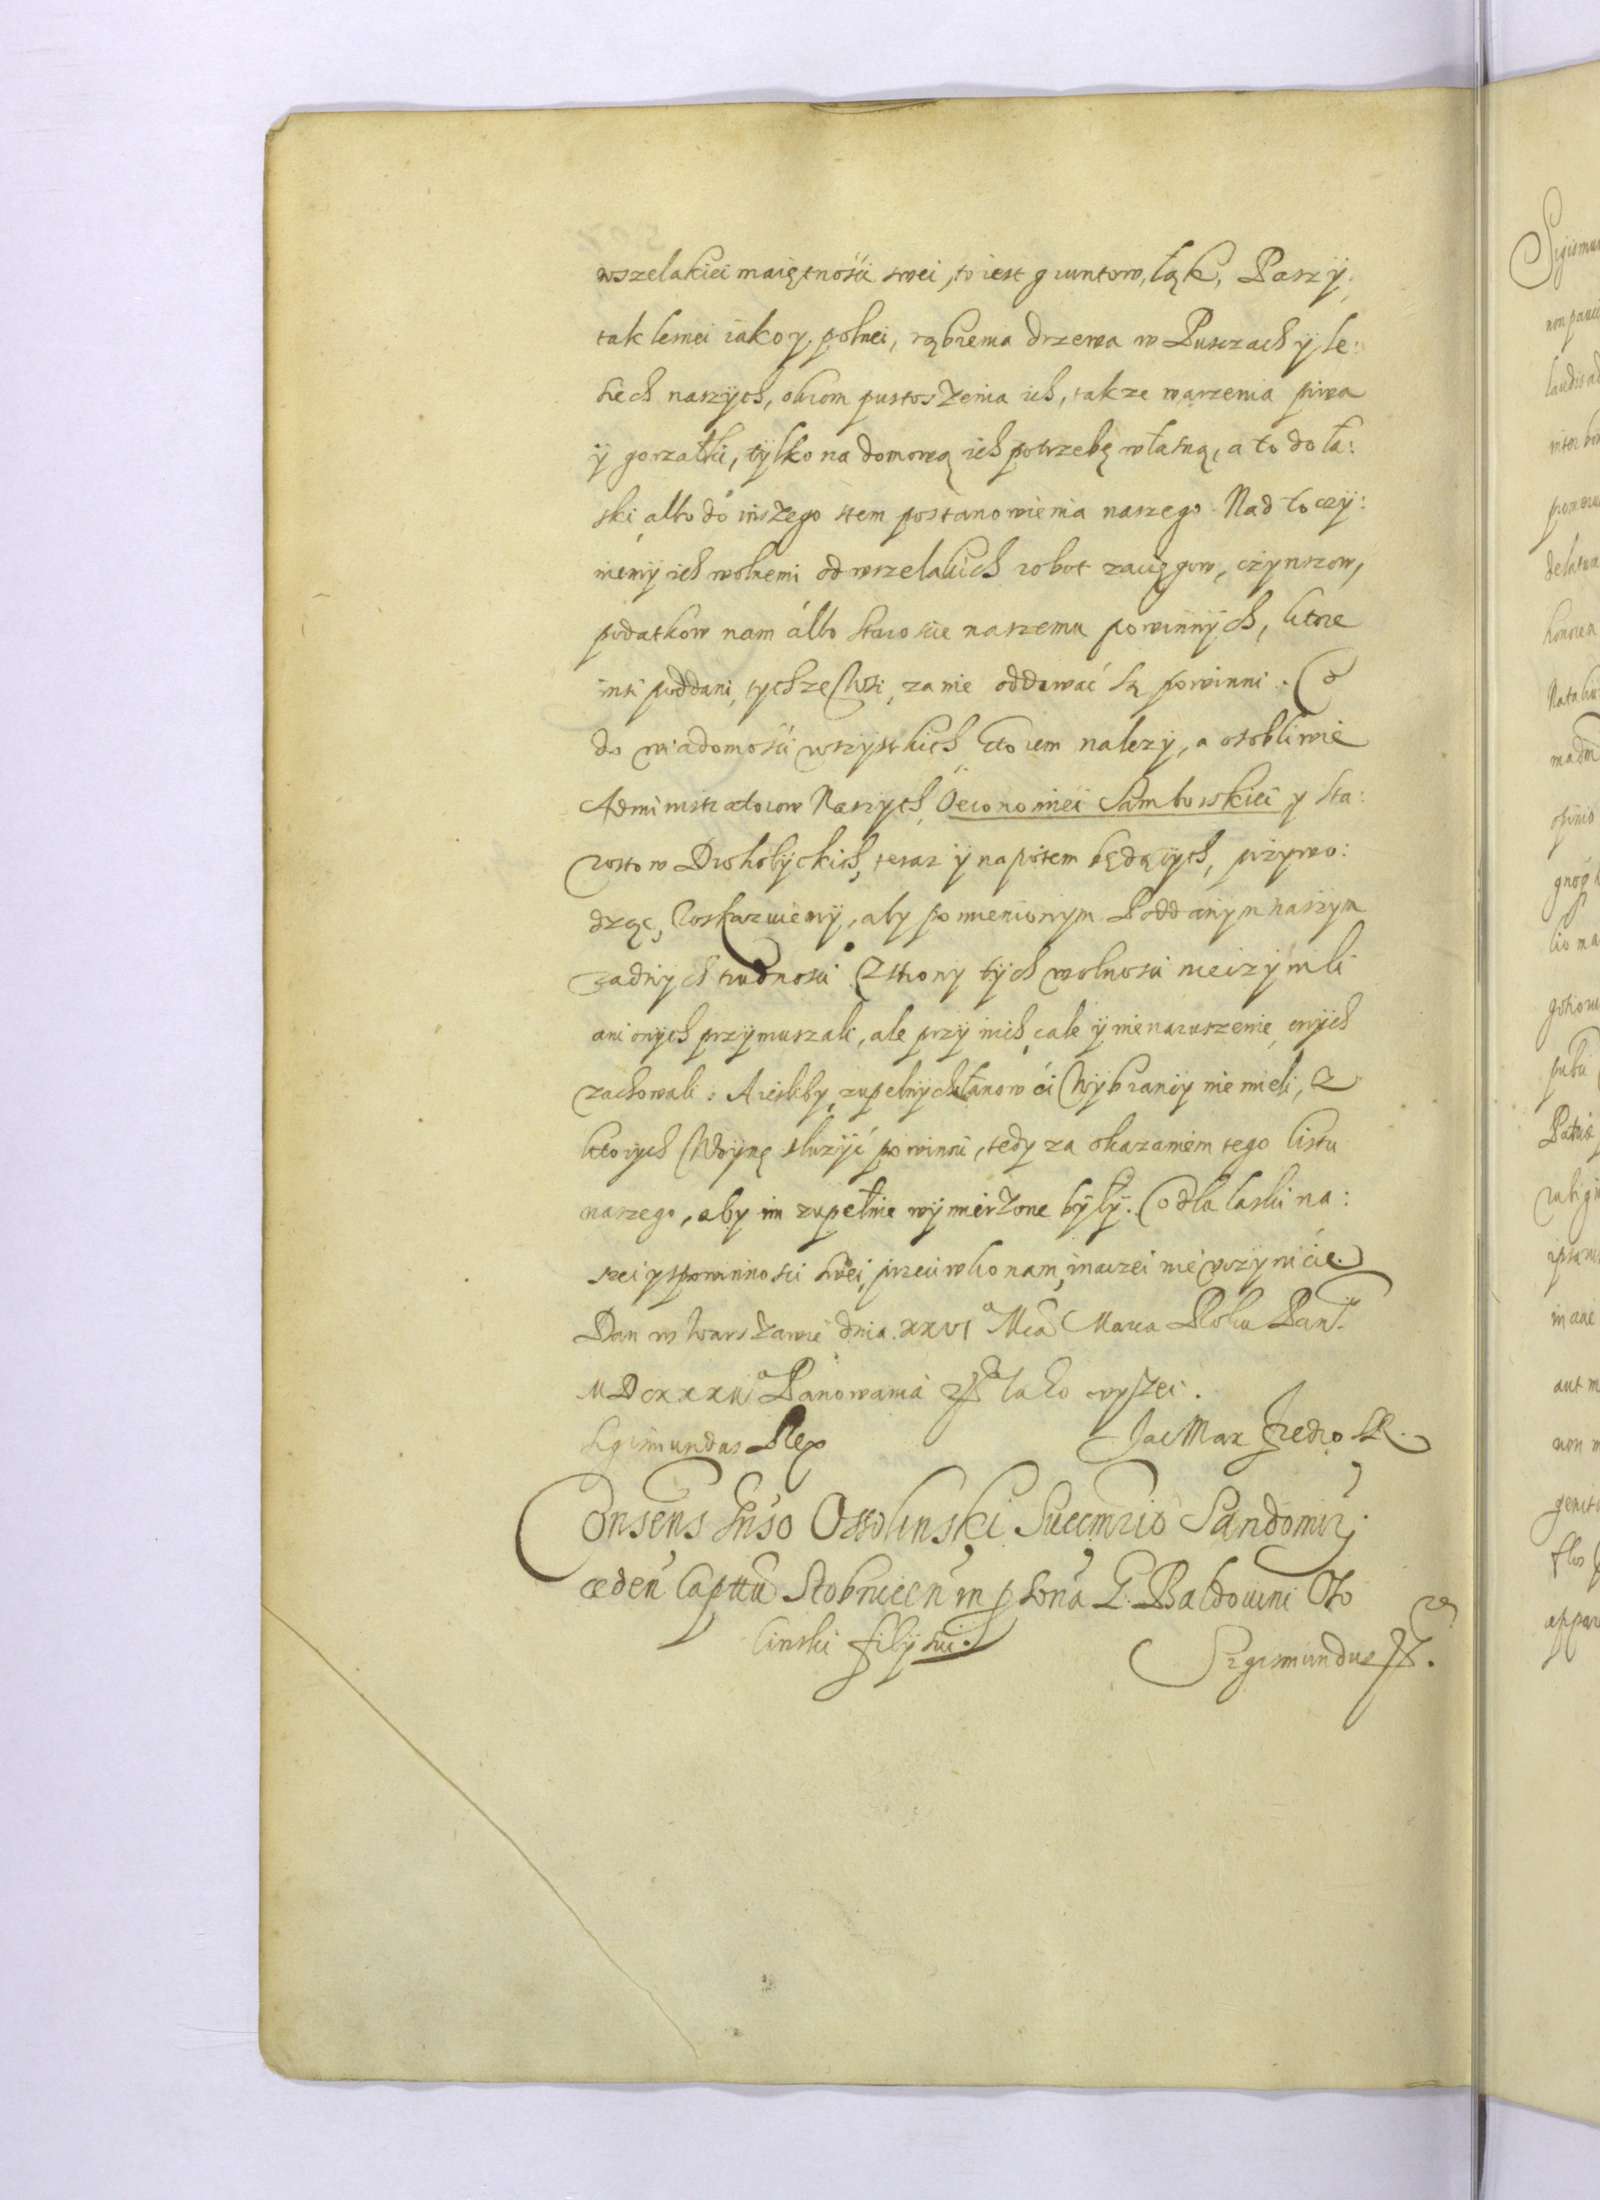 wszelakiei maiętnośći swei, to iest gruntow, łąk, Paszÿ,
tak lesnei iako y polnei, rąbienia drzewa w Pusczach ÿ le:
siech naszÿch, okrom pustoszenia ich, takze warzenia piwa
ÿ gorzałki, tÿlko na domową ich potrzebę własną, a to do ła:
ski albo do inszego stem postanowienia naszego. Nad to czÿ:
niemÿ ich wolnemi od wszelakich robot zaciągow, czÿnszow,
podatkow nam albo Staroscie naszemu powinnÿch, ktore
insi poddani tychze Wsi, zanie oddawać są powinni. Co
do wiadomośći wszÿstkich, ktorem nalezÿ, a osobliwie
Administratorow Naszÿch Oeconomiei Samborskiei y Sta:
rostow Drohobÿckich, teraz ÿ napotem będącÿch, przÿwo:
dząc, Roskazuiemÿ, aby pomienionym Poddanÿm naszÿm
zadnÿch trudnosci Zstrony tÿch wolnosci nieczÿnili
ani onych przÿmuszali, ale przÿ nich cale ÿ nienaruszenie onÿch
zachowali: A iesliby zupełnÿch łanow ci Wÿbrancÿ nie mieli, z
ktorych Woÿnę słuzÿć powinni, tedy za okazaniem tego listu
naszego, aby im zupełnie wÿmierzone bÿłÿ. Co dla łaski na:
szei y spowinnosci swei przeciwko nam, inaczei nie vczÿnićie.
Dan w Warszawie dnia XXVI Mca Marca Roku Pan̄
MDCXXXII Panowania Iako wyszei.
Sigismundus Rex Jac Max Fredro SR.
Consens̄ Gn̄so Ossolinski Succm̄rio Sandomirz
cedeń Captt̄u Stobnicen̄ in psona G. Baldouini Oſso
linski filÿ sui.
Sigismundus III.